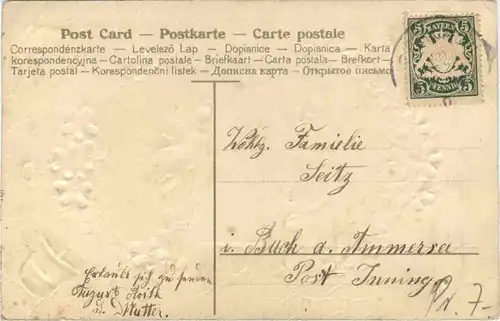 Post Card — Postkarte — Carte postale
Correspondenzkarte — Levelező Lap — Dopisnice — Dopisnica — Karta
korespondencyjna — Cartolina postale — Briefkaart — Carta postala — Brefkort —
Tarjeta postal — Korespondenční lístek — Дописна карта — Открытое письмо
5 BAYERN 5
5 PFENNIG 5
Familie
Seitz
i. Buch a. Ammersee
Post Inning
Erlaubt sich zu senden
August
u. Mutter.
7-